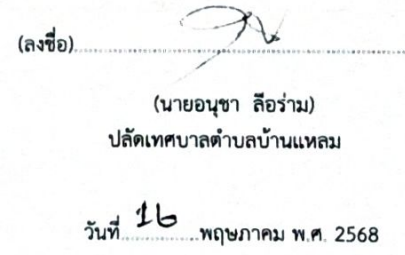 (ลงชื่อ)
(นายอนุชา ลือร่าม)
ปลัดเทศบาลตำบลบ้านแหลม
วันที่ 16 พฤษภาคม พ.ศ. 2568